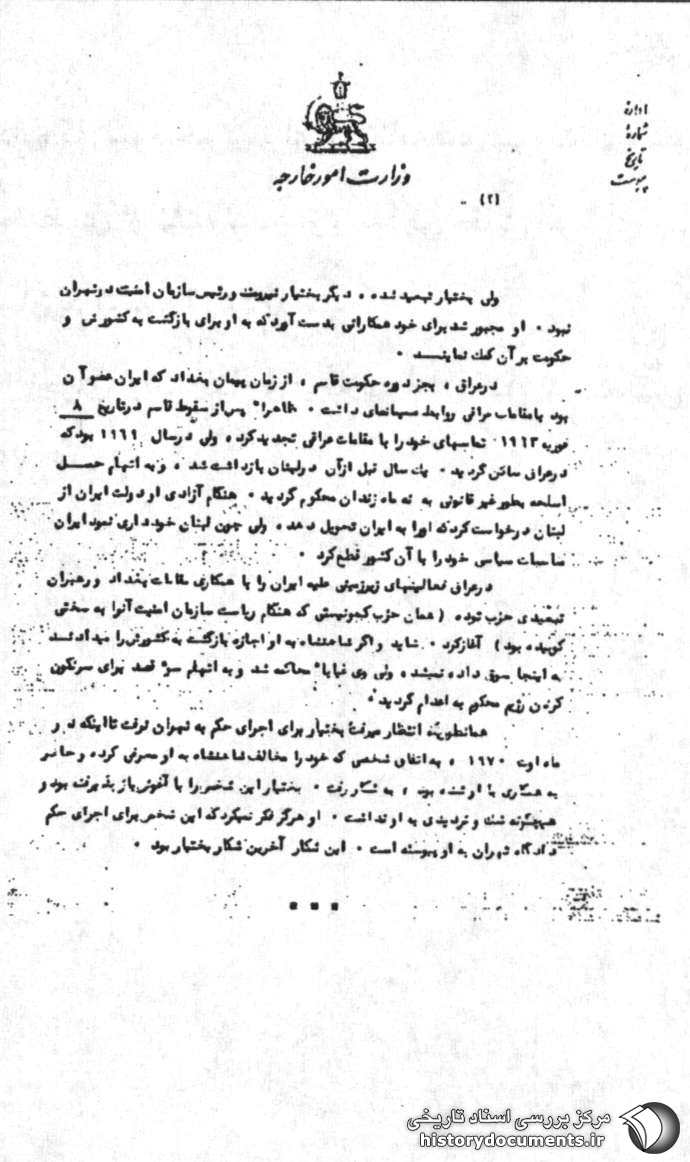 اداره
شماره
تاریخ
پیوست
وزارت امور خارجه
(۲) ..
ولی بختیار تبعید شده ، دیگر بختیار نیرومند و رئیس سازمان امنیت در تهران
نبود ۰ او مجبور شد برای خود همکارانی بدست آورد که به او برای بازگشت به کشورش و
حکومت بر آن کمک نمایند ۰
در عراق ، بجز دوره حکومت قاسم ، از زمان پیمان بغداد که ایران عضو آن
بود با مقامات عراقی روابط صمیمانه‌ای داشت ۰ ظاهرا" پس از سقوط قاسم در تاریخ ۸
فوریه ۱۹۶۳ تماسهای خود را با مقامات عراقی تجدید کرد ، ولی در سال ۱۹۶۹ بود که
در عراق ساکن گردید ۰ یک سال قبل از آن در لبنان بازداشت شد ، و به اتهام حمل
اسلحه بطور غیر قانونی به نه ماه زندان محکوم گردید ۰ هنگام آزادی او دولت ایران از
لبنان درخواست کرد که او را به ایران تحویل دهد ، ولی چون لبنان خودداری نمود ایران
مناسبات سیاسی خود را با آن کشور قطع کرد ۰
در عراق فعالیتهای زیرزمینی علیه ایران را با همکاری مقامات بغداد و رهبران
تبعیدی حزب توده ( همان حزب کمونیستی که هنگام ریاست سازمان امنیت آنرا به سختی
کوبیده بود ) آغاز کرد ۰ شاید و اگر شاهنشاه به او اجازه بازگشت به کشورش را میدادند
به اینجا سوق داده نمیشد ، ولی وی غیابا" محاکمه شد و به اتهام سوء قصد برای سرنگون
کردن رژیم محکوم به اعدام گردید ۰
همانطوریکه انتظار میرفت بختیار برای اجرای حکم به تهران نرفت تا اینکه در
ماه اوت ۱۹۷۰ ، به اتفاق شخصی که خود را مخالف شاهنشاه به او معرفی کرده و حاضر
به همکاری با او شده بود ، به شکار رفت ۰ بختیار این شخص را با آغوش باز پذیرفته بود و
هیچگونه شک و تردیدی به او نداشت ۰ او هرگز فکر نمیکرد که این شخص برای اجرای حکم
دادگاه تهران به او پیوسته است ۰ این شکار آخرین شکار بختیار بود ۰
مرکز بررسی اسناد تاریخی
historydocuments.ir